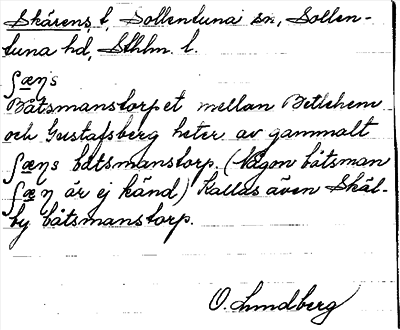 Skärens, t, Sollentuna sn, Sollen-
tuna hd, Sthlm. l.
ʃæŋs
Båtsmanstorpet mellan Betlehem
och Gustafsberg heter av gammalt
ʃæŋs båtsmanstorp. (Någon båtsman
ʃæŋ är ej känd.) Kallas även Skäl-
by båtsmanstorp.
O. Lundberg